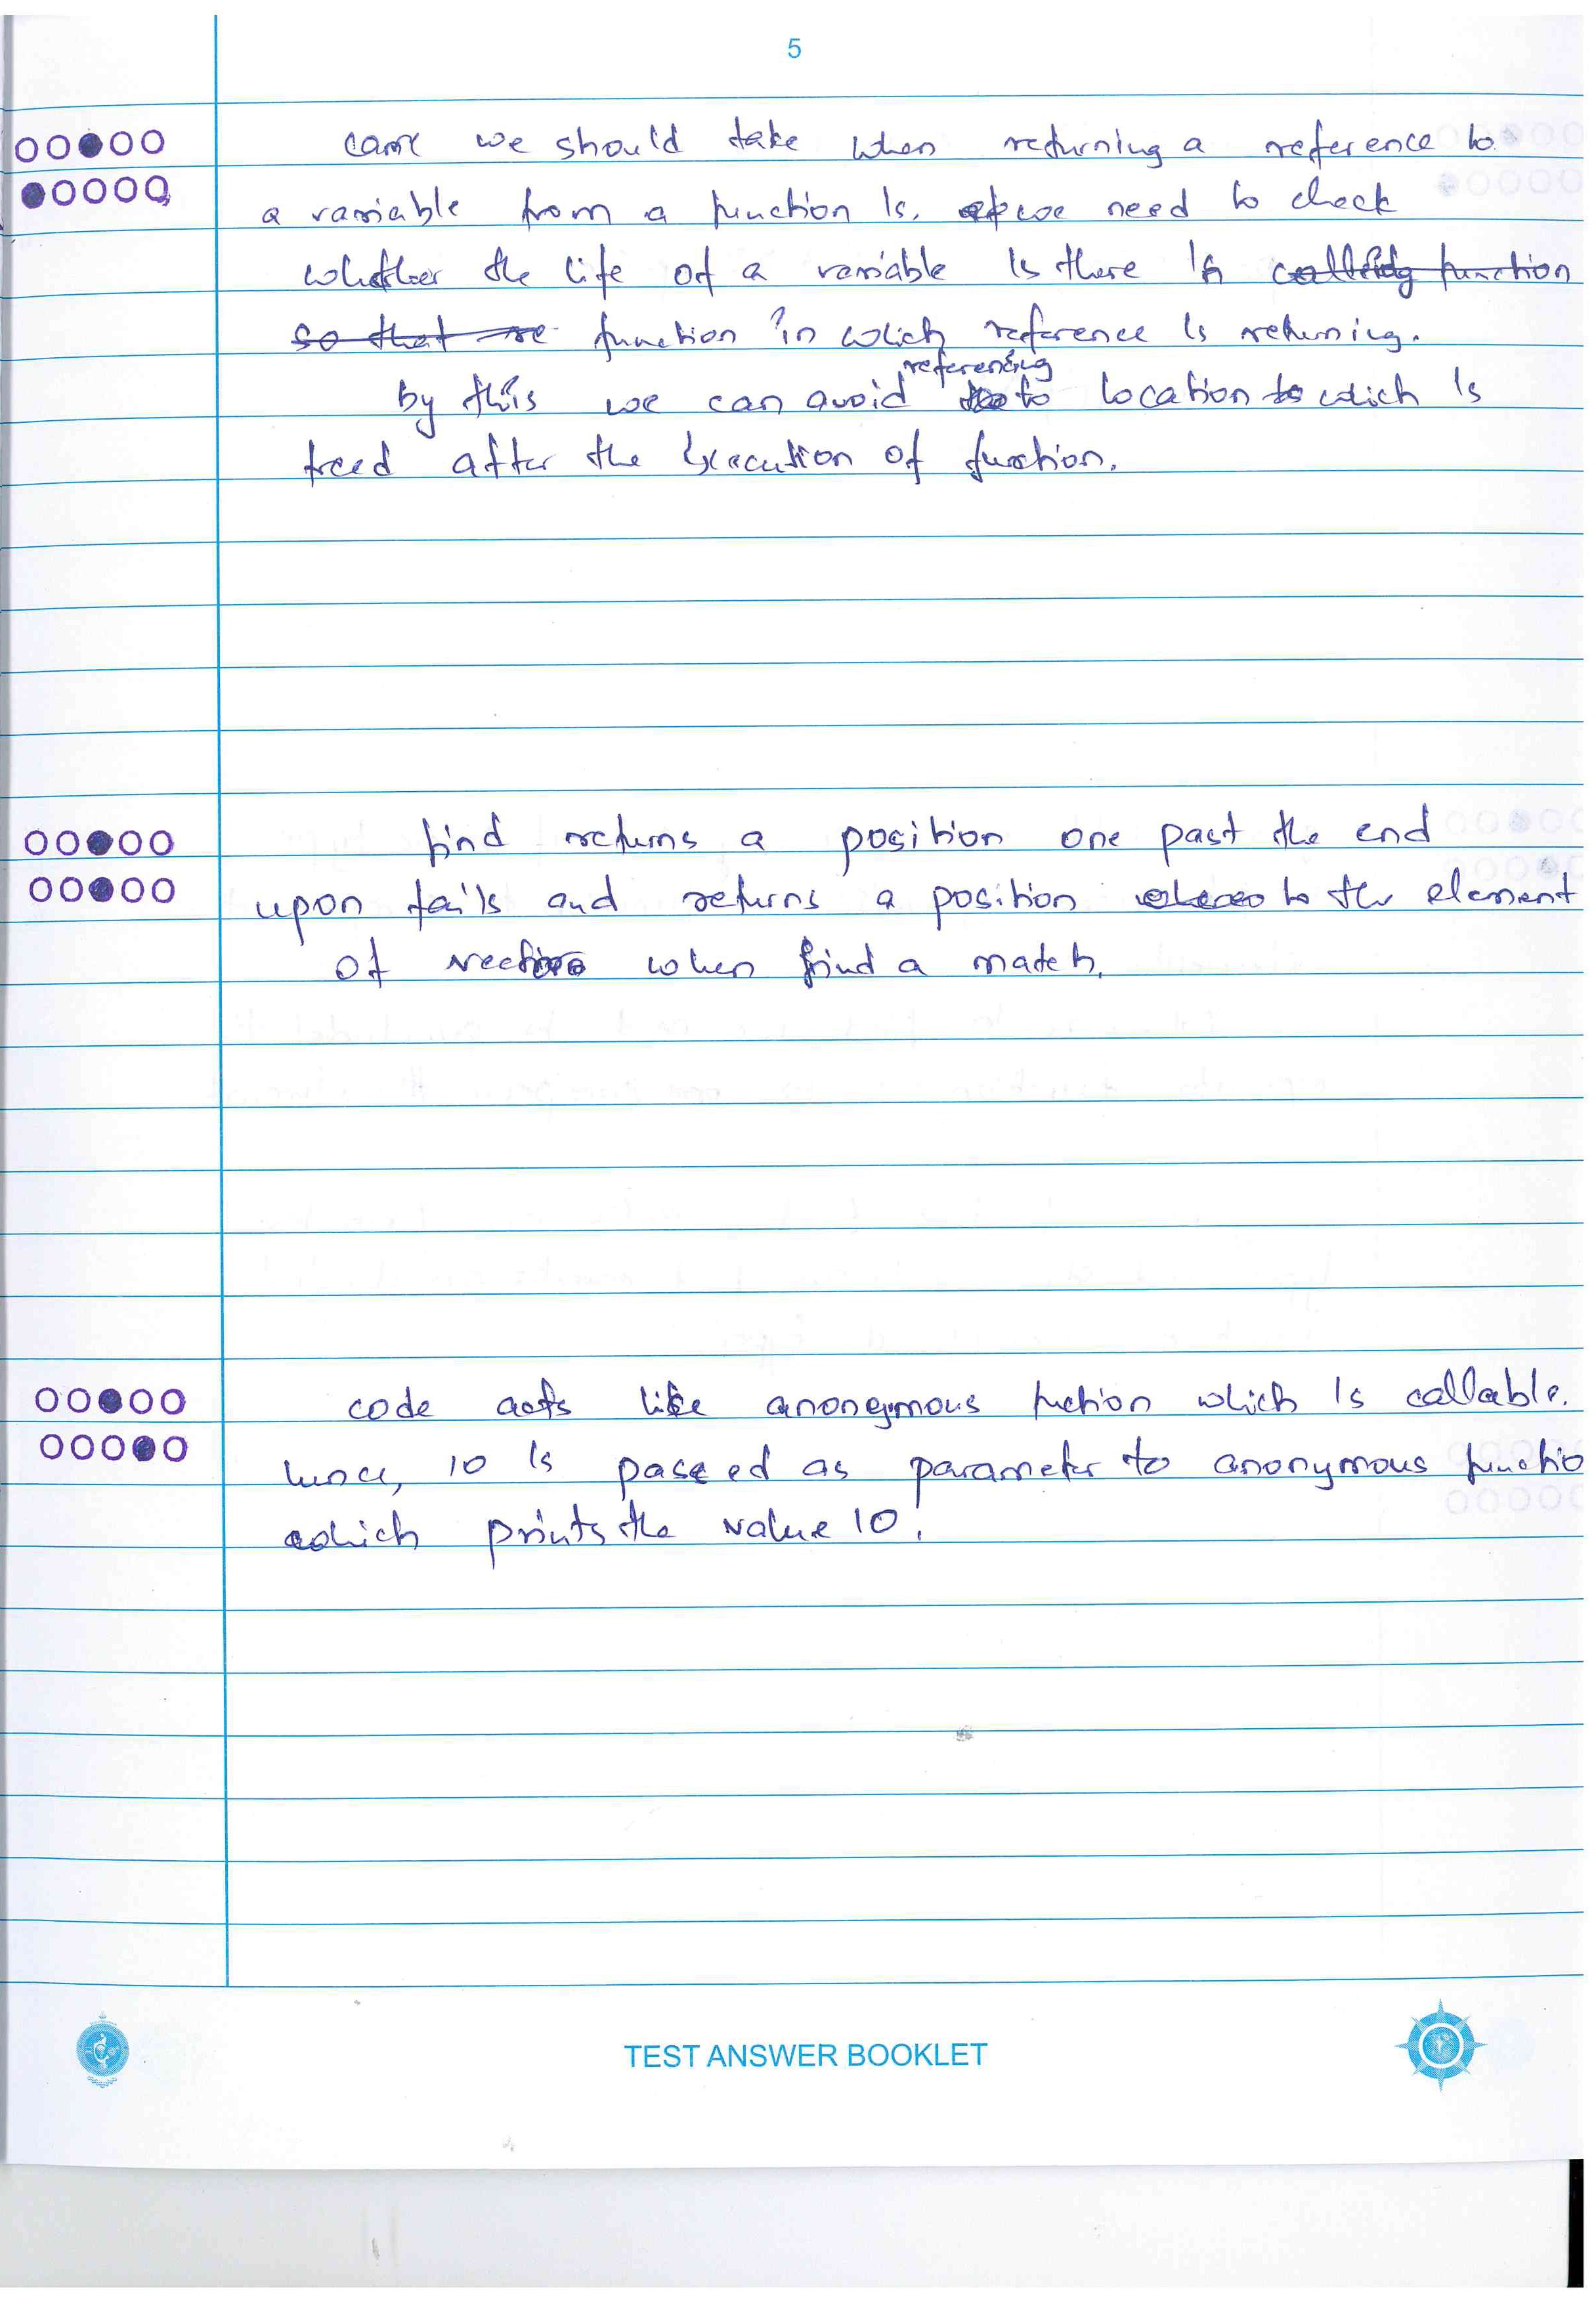 5
care we should take when returning a reference to
a variable from a function is, we need to check
whether the life of a variable is there in calling function
so that re function in which reference is returning.
referencing
by this we can avoid to location to which is
freed after the execution of function.
find returns a position one past the end
upon fails and returns a position to the element
of vector when find a match.
code acts like anonymous fuction which is callable.
hence, 10 is passed as parameter to anonymous functio
which prints the value 10.
TEST ANSWER BOOKLET